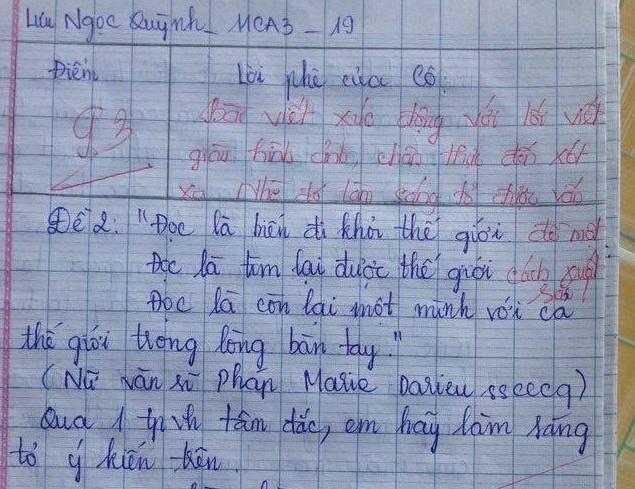 Lưu Ngọc Quỳnh _ MCA3 - 19
Điểm
Lời phê của Cô.
9,3
Bài viết xúc động với lối viết
giàu hình ảnh, chân thực đến xót
xa. Nhờ đó làm sáng tỏ được vấn
đề một
cách xuất
sắc
Đề 2: "Đọc là biến đi khỏi thế giới
Đọc là tìm lại được thế giới
Đọc là còn lại một mình với cả
thế giới trong lòng bàn tay."
(Nữ văn sĩ Pháp Marie
Qua 1 tp vh tâm đắc, em hãy làm sáng
tỏ ý kiến trên.